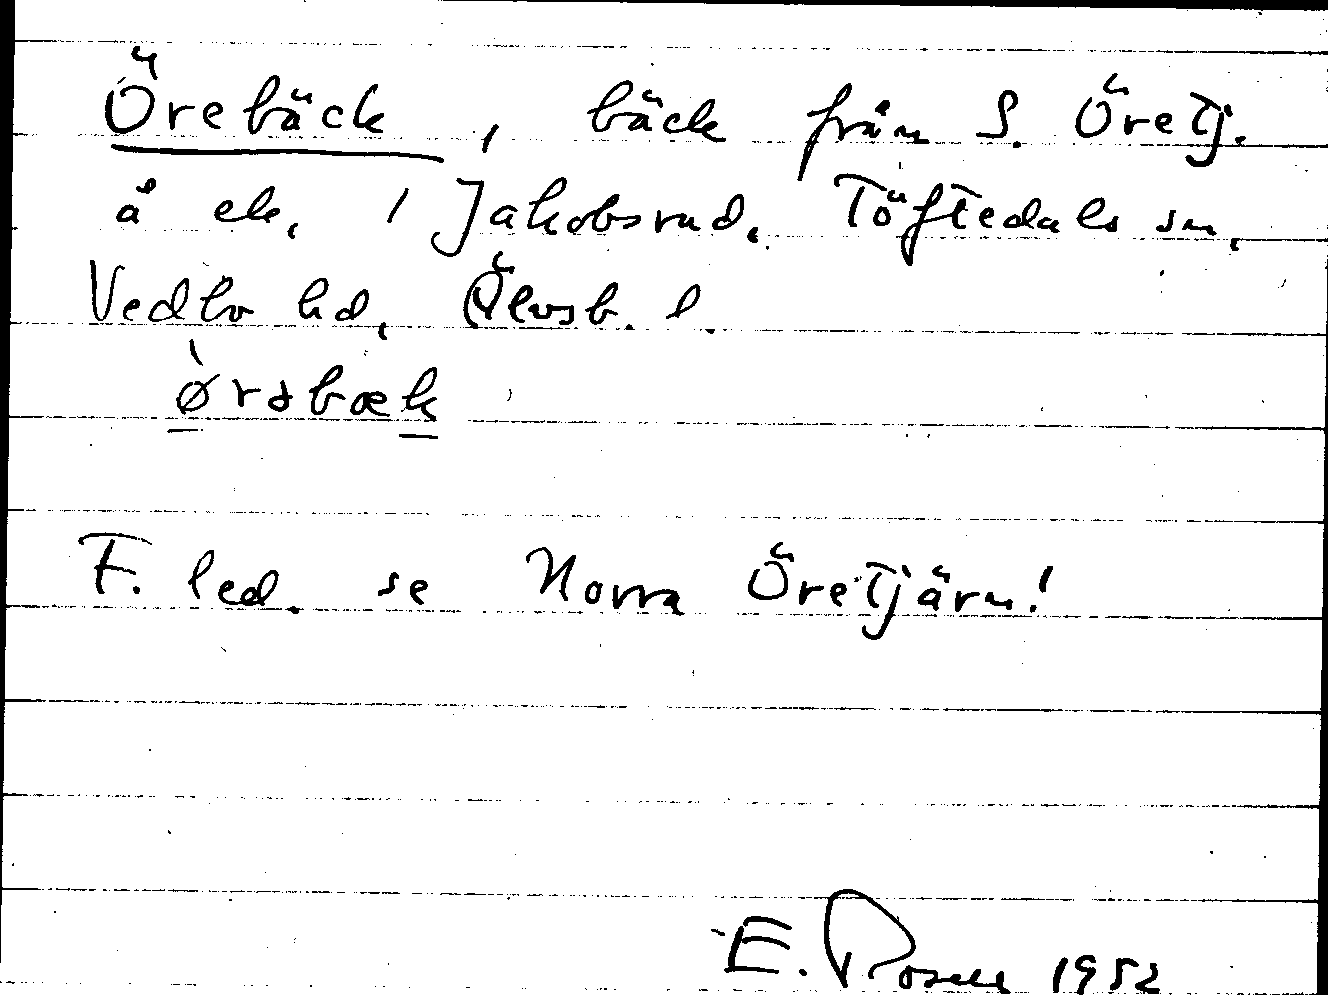 Örebäck, bäck från S. Öretj.
å ek. 1 Jakobsrud, Töftedals sn,
Vedbo hd, Älvsb. l.
ørəbæk
F. led. se Norra Öretjärn!
E. Rosell 1952